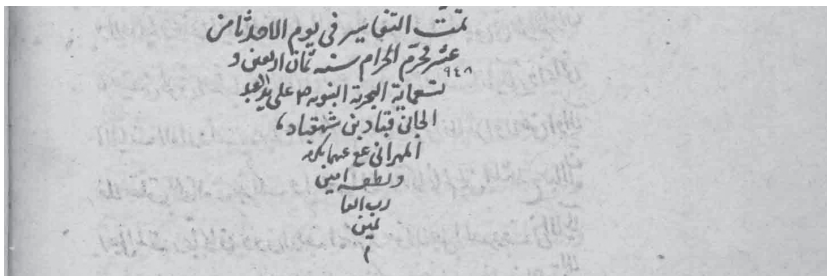 تمت التفاسير فى يوم الاحد ثامن
عشر محرم الحرام سنه ثمان اربعين و
٩٤٨ تسعماية الهجرية النبويه ص على يد العبد
الجانى قباد بن شهقباد
المهرانى
ولطفه امين
رب العا
لمين
م